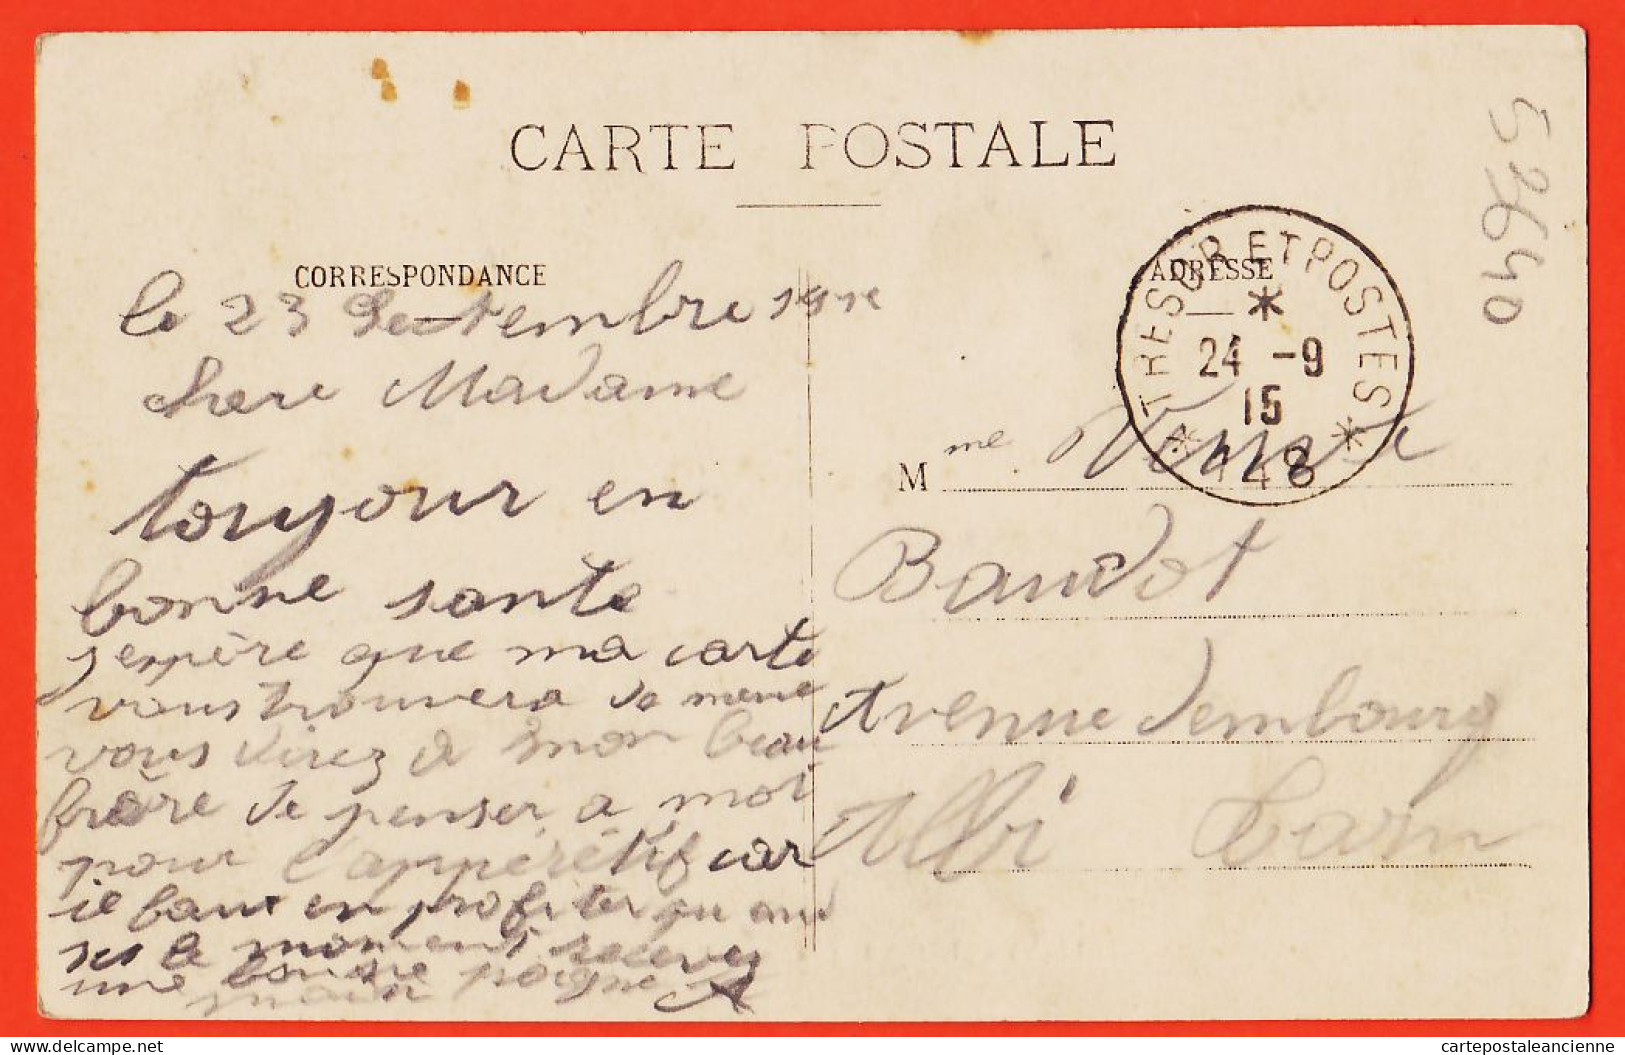 CARTE POSTALE
CORRESPONDANCE
le 23 Septembre 1915
chere Madame
toujour en
bonne sante
j espère que ma carte
vous trouvera de meme
vous direz a mon beau
frère de penser a moi
pour l'apperétif car
il faut en profiter qu and
ses le moment recevez
une bonne poigne
main
ADRESSE
TRESOR ET POSTES
24 -9
15
148
M me
Baudot
Avenue dembourg
Albi Tarn
52640
delcampe.net
cartepostaleancienne